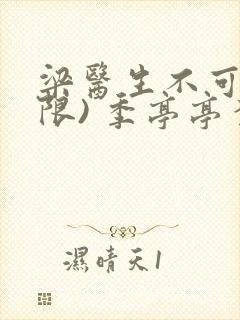 梁醫生不可
限) 季亭亭
濕晴天1